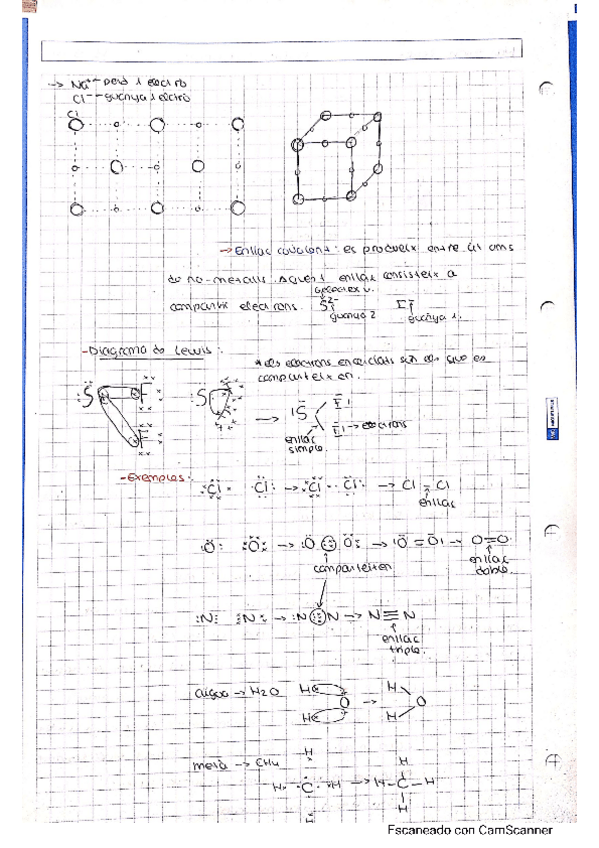 → Na⁺ – perd 1 electró
Cl⁻ – guanya 1 electró
Cl
→ Enllaç covalent: es produeix entre àtoms
de no-metalls. Aquest enllaç consisteix a
compartir electrons.
S²⁻
guanya 2
guanya 1.
- Diagrama de Lewis:
* els electrons encerclats són els que es
comparteixen.
S F
F
S
→ S
F
F → electrons
enllaç
simple
- Exemples:
Cl · Cl → Cl · Cl → Cl – Cl
enllaç
O: O → :O :: O: → O = O → O=O
comparteixen
enllaç
doble.
:N: :N: → :N N → N≡N
enllaç
triple.
aigua → H2O
H
O
H
→
H
O
H
metà → CH4
H
H C H
→
H
H–C–H
H
Escaneado con CamScanner